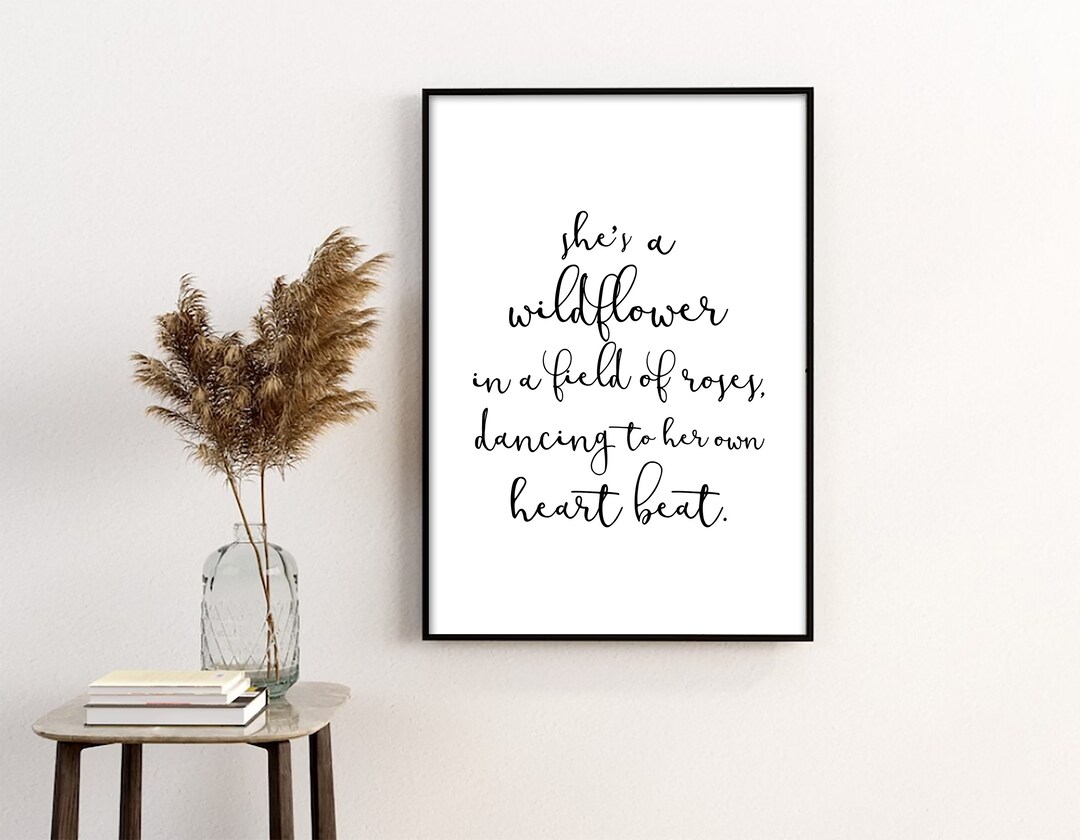 she's a
wildflower
in a field of roses,
dancing to her own
heart beat.